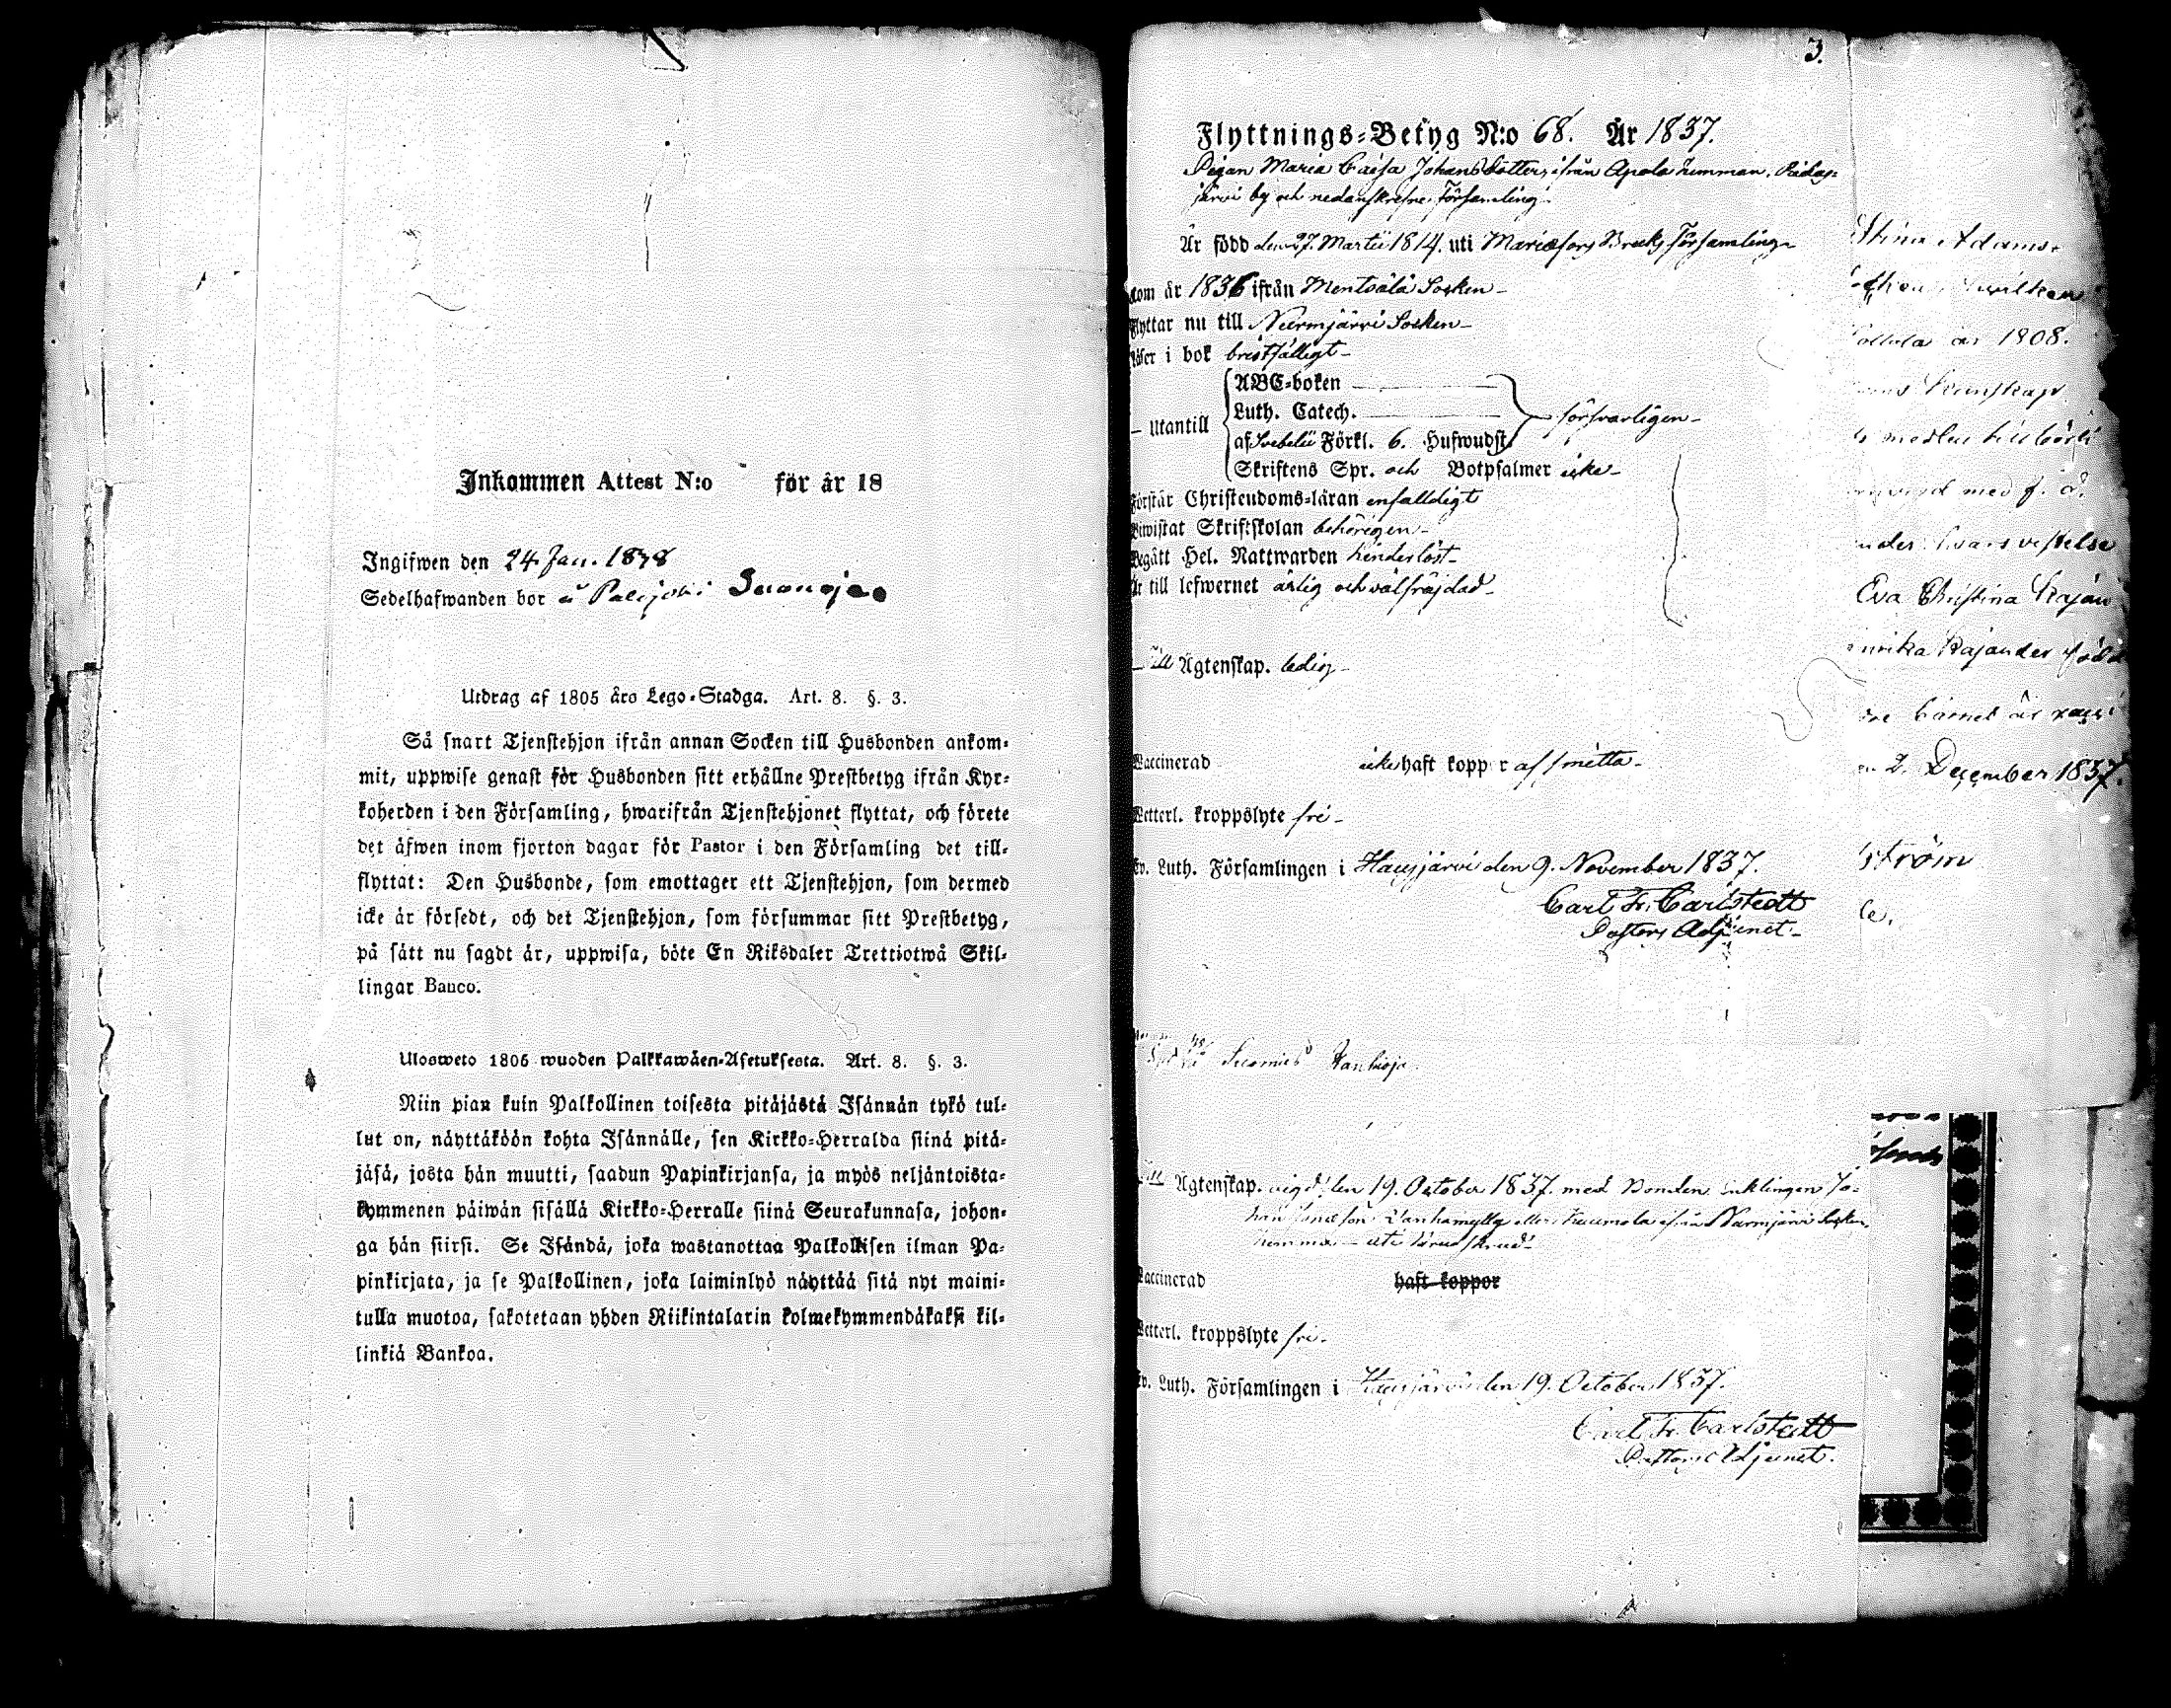 Inkommen Attest N:o för år 18
Ingifwen den 24 Jan. 1838
Sedelhafwanden bor i Palojoki
Utdrag af 1805 års Lego-Stadga. Art. 8. §. 3.
Så snart Tjenstehjon ifrån annan Socken till Husbonden ankom-
mit, uppwise genast för Husbonden sitt erhållne Prestbetyg ifrån Kyr-
koherden i den Församling, hwarifrån Tjenstehjonet flyttat, och förete
det äfwen inom fjorton dagar för Pastor i den Församling det till-
flyttat: Den Husbonde, som emottager ett Tjenstehjon, som dermed
icke är försedt, och det Tjenstehjon, som försummar sitt Prestbetyg,
på sätt nu sagdt är, uppwisa, böte En Riksdaler Trettiotwå Skil-
lingar Banco.
Ulosweto 1805 wuoden Palkkawäen-Asetuksesta. Art. 8. §. 3.
Niin pian kuin Palkollinen toisesta pitäjästä Isännän tykö tul-
lut on, näyttäköön kohta Isännälle, sen Kirkko-Herralda siinä pitä-
jäsä, josta hän muutti, saadun Papinkirjansa, ja myös neljäntoista-
kymmenen päiwän sisällä Kirkko-Herralle siinä Seurakunnasa, johon-
ga hän siirsi. Se Isändä, joka wastanottaa Palkollisen ilman Pa-
pinkirjata, ja se Palkollinen, joka laiminlyö näyttää sitä nyt maini-
tulla muotoa, sakotetaan yhden Riikintalarin kolmekymmendäkaksi kil-
linkiä Bankoa.
3.
Flyttnings-Betyg N:o 68. År 1837.
Pigan Maria Caisa Johansdotter, ifrån Apola hemman,
järvi by och nedanskrefne Församling
Är född den 27. Martii 1814. uti Mariefors Bruks Församling
kom år 1836 ifrån Mentsälä Socken
Flyttar nu till Nurmjärvi Socken
Läser i bok bristfälligt
Utantill
ABC-boken
Luth. Catech.
af Svebelii Förkl. 6. Hufwudst.
försvarligen
Skriftens Spr. och Botpsalmer icke
Förstår Christendoms-läran enfalldigt
Biwistat Skriftskolan behörigen
Begått Hel. Nattwarden hinderlöst
Är till lefwernet ärlig och välfräjdad
Till Ägtenskap. ledig
Vaccinerad icke haft koppor af smitta
Wetterl. kroppslyte fri
Ev. Luth. Församlingen i Hausjärvi den 9. November 1837.
Carl Fr. Carlstedt
Pastors Adjunct
Till Ägtenskap. vigd den 19. October 1837. med Bonden Enklingen Jo-
ifrån Nurmjärvi Socken
Vaccinerad haft koppor
Wetterl. kroppslyte fri
Ev. Luth. Församlingen i Hausjärvi den 19. October 1837.
Carl Fr. Carlstedt
Pastors Adjunct.
Stina Adams
år 1808.
med f. d.
Eva Christina Kajan
Kajander född
2. December 1837.
ström